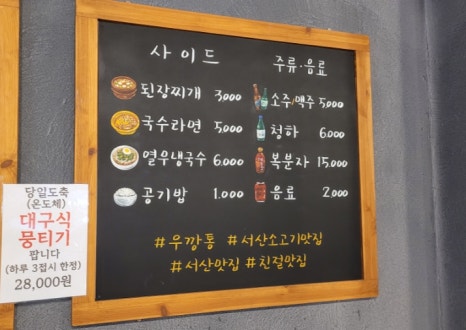 사이드
된장찌개 3,000
국수라면 5,000
열우냉국수 6,000
공기밥 1,000
주류.음료
소주/맥주 5,000
청하 6,000
복분자 15,000
음료 2,000
#우깡통 #서산소고기맛집
#서산맛집 #친절맛집
당일도축
(온도체)
대구식
뭉티기
팝니다
(하루 3접시 한정)
28,000원